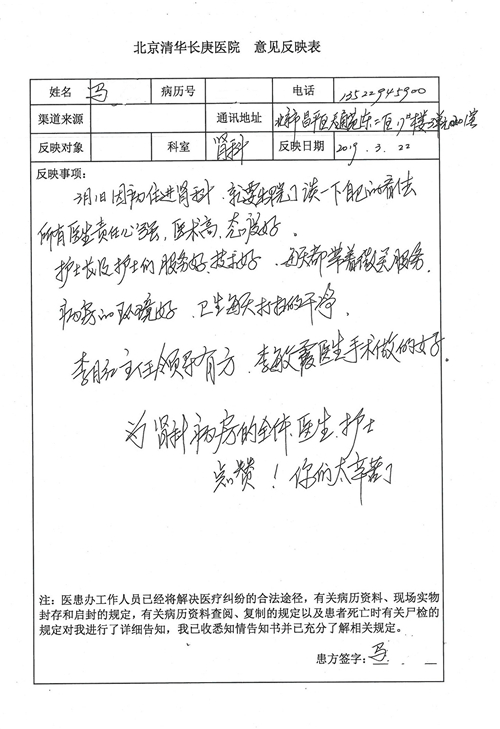 北京清华长庚医院 意见反映表
姓名 冯 病历号 电话 13522945900
渠道来源 通讯地址 北京市昌平区天通苑东二区
反映对象 科室 肾科 反映日期 2019.3.22
反映事项:
3月1日因病住进肾科,就要出院了谈一下自己的看法
所有医生责任心强,医术高,态度好。
护士长及护士们服务好,技术好,每天都带着微笑服务,
病房的环境好,卫生每天打扫的干净,
李月红主任领导有方,李敏霞医生手术做的好。
为肾科病房的全体医生、护士
点赞!你们太辛苦了
注:医患办工作人员已经将解决医疗纠纷的合法途径,有关病历资料、现场实物
封存和启封的规定,有关病历资料查阅、复制的规定以及患者死亡时有关尸检的
规定对我进行了详细告知,我已收悉知情告知书并已充分了解相关规定。
患方签字:冯